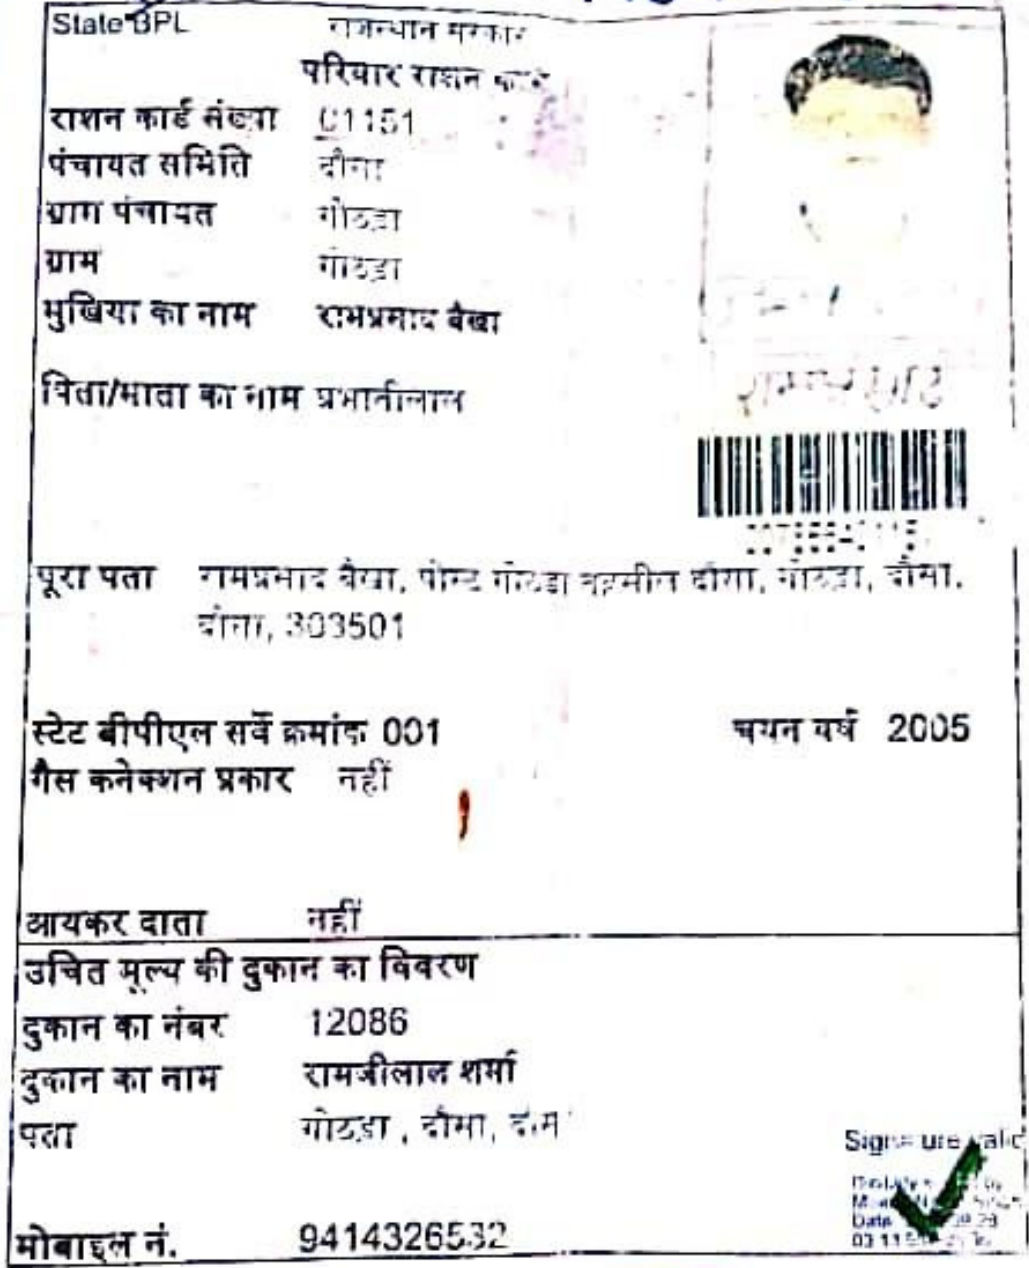 State BPL राजस्थान सरकार
परिवार राशन कार्ड
राशन कार्ड संख्या 01151
पंचायत समिति दौसा
ग्राम पंचायत गोठडा
ग्राम गोठडा
मुखिया का नाम रामप्रसाद बैरवा
पिता/माता का नाम प्रभातीलाल
रामप्रसाद
पूरा पता रामप्रसाद बैरवा, पोस्ट गोठडा तहसील दौसा, गोठडा, दौसा,
दौसा, 303501
स्टेट बीपीएल सर्वे क्रमांक 001 चयन वर्ष 2005
गैस कनेक्शन प्रकार नहीं
आयकर दाता नहीं
उचित मूल्य की दुकान का विवरण
दुकान का नंबर 12086
दुकान का नाम रामजीलाल शर्मा
पता गोठडा , दौसा, दौसा
Signature valid
मोबाइल नं. 9414326532